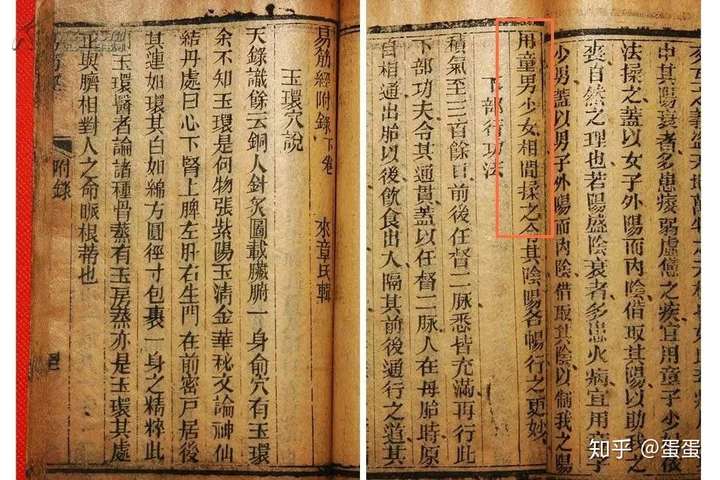 中其陽衰者多患痿弱虛憊之疾宜用童子少女
法揉之蓋以女子外陰而內陽借取其陽以助我之
衰自然之理也若陽盛陰衰者多患火病宜用童子
少男蓋以男子外陽而內陰借取其陰以制我之陽
用童男少女相間揉之令其陰陽各暢行之更妙
下部行功法
積氣至三百餘日前後任督二脈悉皆充滿再行此
下部功夫令其通貫蓋以任督二脈人在母胎時原
自相通出胎以後飲食出入隔其前後通行之道其
易筋經附錄下卷 來章氏輯
玉環穴說
天錄識餘云銅人針炙圖載臟腑一身俞穴有玉環
余不知玉環是何物張紫陽玉清金華秘文論神仙
結丹處曰心下腎上脾左肝右生門在前密戶居後
其連如環其白如綿方圓徑寸包裹一身之精粹此
即玉環醫者論諸種骨蒸有玉房蒸亦是玉環其處
正與臍相對人之命脈根蒂也
附錄
知乎 @蛋蛋